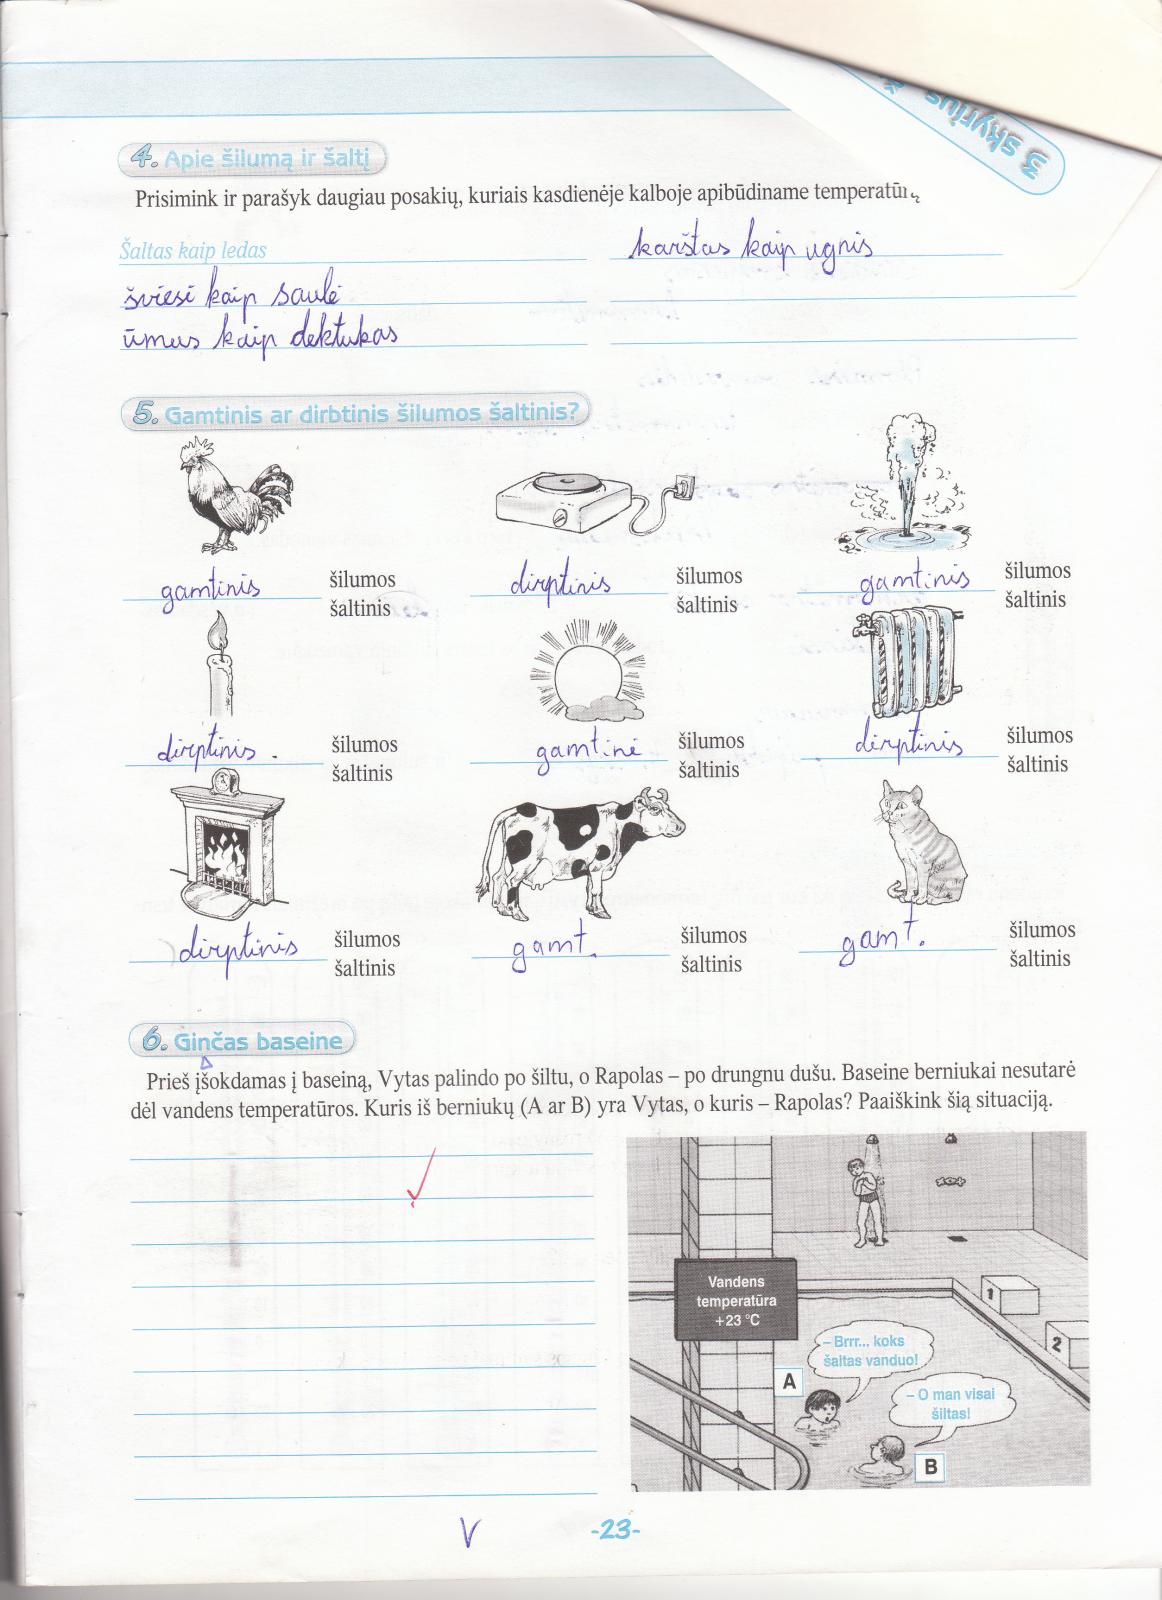 3 skyrius
4. Apie šilumą ir šaltį
Prisimink ir parašyk daugiau posakių, kuriais kasdienėje kalboje apibūdiname temperatūrą
Šaltas kaip ledas
karštas kaip ugnis
šviesi kaip saulė
ūmus kaip dektukas
5. Gamtinis ar dirbtinis šilumos šaltinis?
gamtinis šilumos šaltinis
dirptinis šilumos šaltinis
gamtinis šilumos šaltinis
dirptinis. šilumos šaltinis
gamtinė šilumos šaltinis
dirptinis šilumos šaltinis
dirptinis šilumos šaltinis
gamt. šilumos šaltinis
gamt. šilumos šaltinis
6. Ginčas baseine
Prieš įšokdamas į baseiną, Vytas palindo po šiltu, o Rapolas – po drungnu dušu. Baseine berniukai nesutarė
dėl vandens temperatūros. Kuris iš berniukų (A ar B) yra Vytas, o kuris – Rapolas? Paaiškink šią situaciją.
Vandens
temperatūra
+23 °C
1
2
– Brrr... koks
šaltas vanduo!
A
– O man visai
šiltas!
B
V
-23-